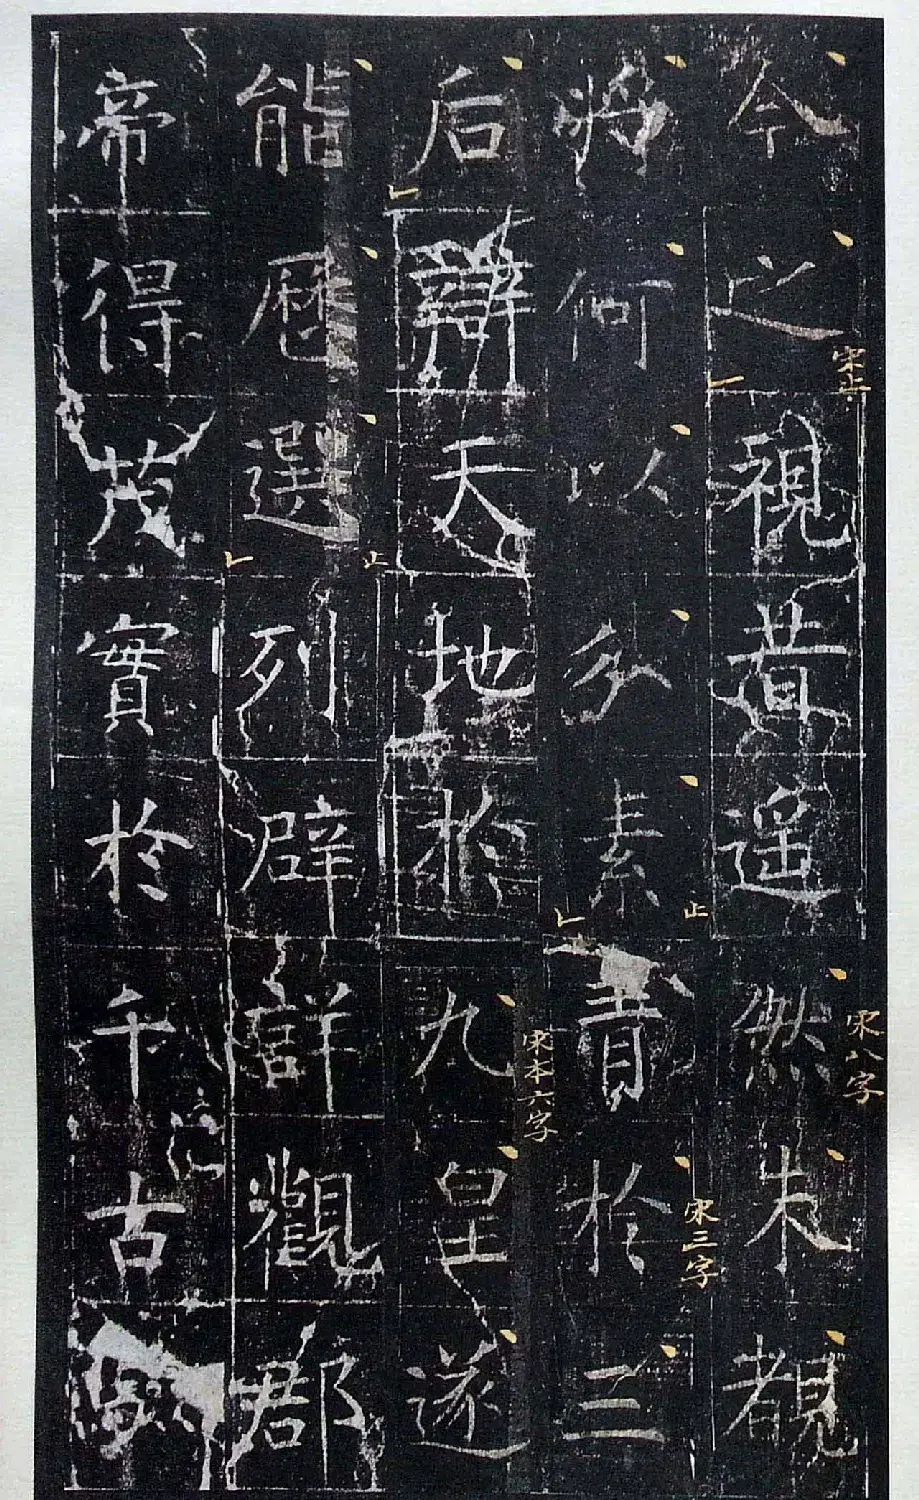 今之視昔遥然未覩
將何以分素青於三
后辯天地於九皇遂
能歷選列辟詳觀郡
帝得茂實於千古
宋止
宋八字
止
宋三字
宋本六字
止